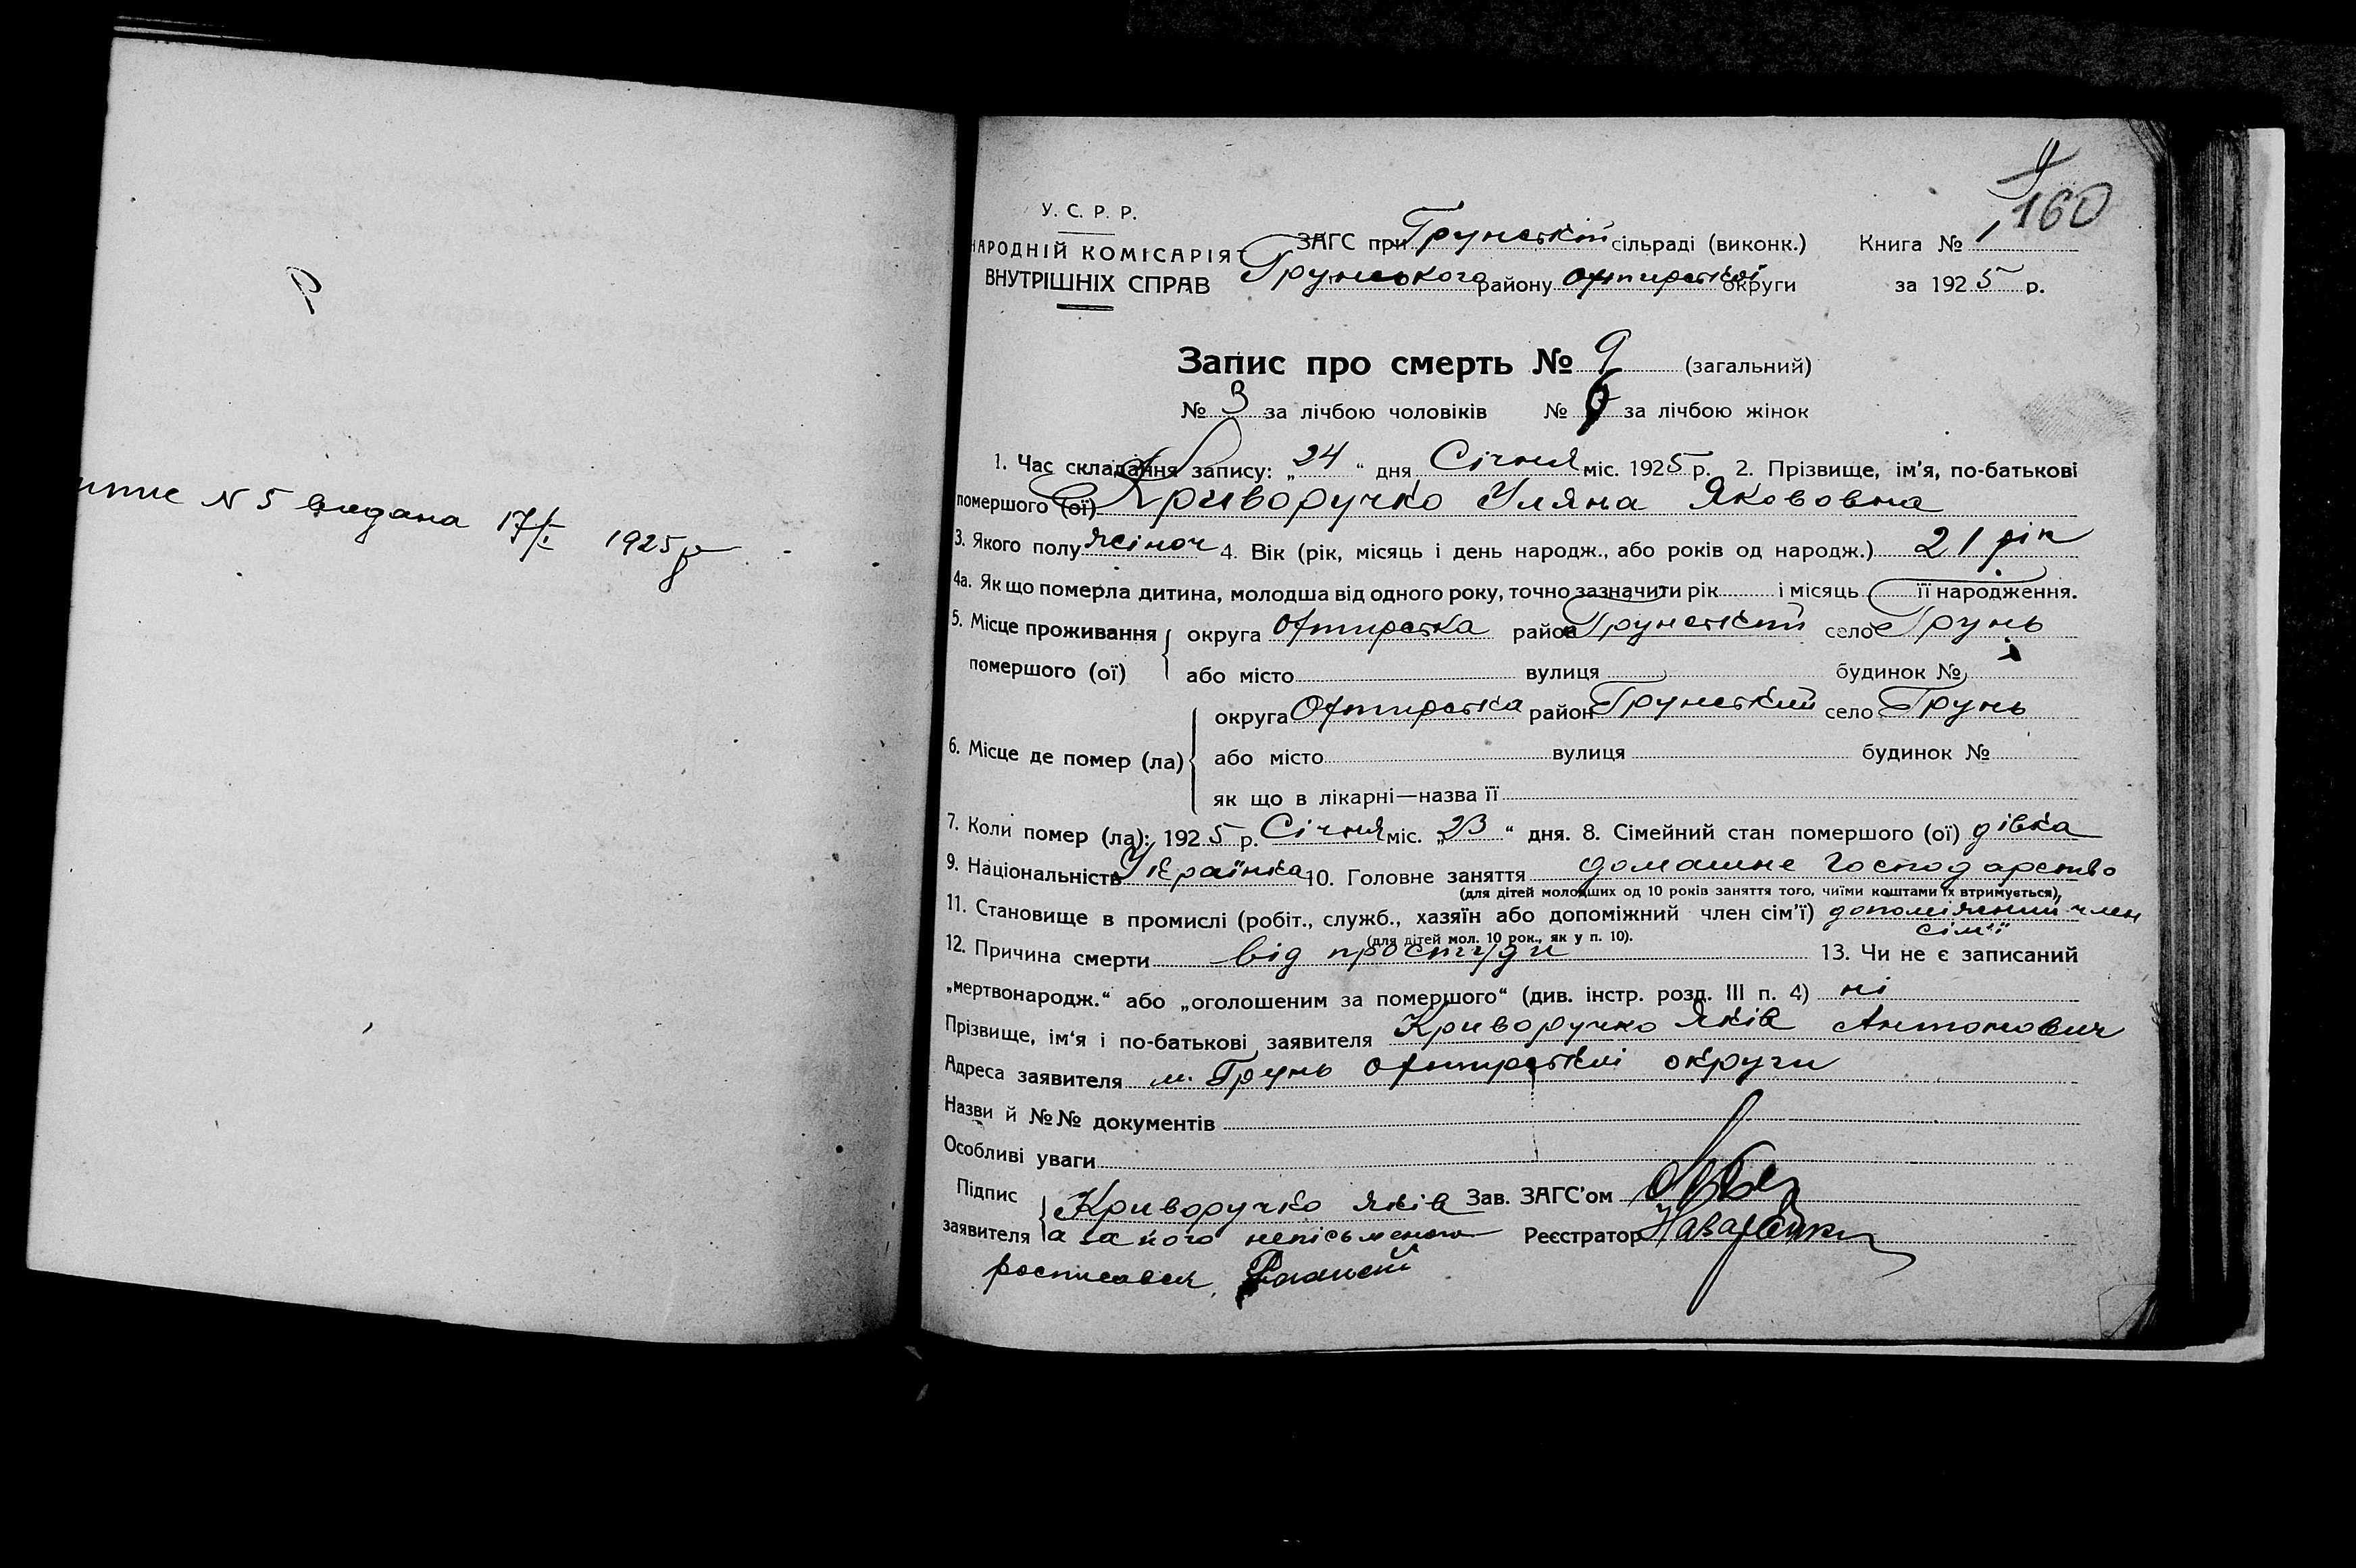 N 5 видана 17/I 1925 р
160
У. С. Р. Р.
НАРОДНІЙ КОМІСАРІЯТ
ВНУТРІШНІХ СПРАВ
ЗАГС при Грунській сільраді (виконк.) Книга № 1
Грунського району Охтирської округи за 1925 р.
Запис про смерть № 9 (загальний)
№ 3 за лічбою чоловіків № 6 за лічбою жінок
1. Час складання запису: „24“ дня Січня міс. 1925 р. 2. Прізвище, ім'я, по-батькові
помершого (ої) Криворучко Уляна Якововна
3. Якого полу жіноч 4. Вік (рік, місяць і день народж., або років од народж.) 21 рік
4а. Як що померла дитина, молодша від одного року, точно зазначити рік і місяць її народження.
5. Місце проживання помершого (ої) округа Охтирська район Грунський село Грунь
або місто вулиця будинок №
6. Місце де помер (ла) округа Охтирська район Грунський село Грунь
або місто вулиця будинок №
як що в лікарні—назва її
7. Коли помер (ла): 1925 р. Січня міс. „23“ дня. 8. Сімейний стан помершого (ої) дівка
9. Національність Українка 10. Головне заняття домашнє господарство
(для дітей молодших од 10 років заняття того, чиїми коштами їх втримується),
11. Становище в промислі (робіт., служб., хазяїн або допоміжний член сім'ї) допоміжний член
сім'ї
(для дітей мол. 10 рок., як у п. 10).
12. Причина смерти від простуди 13. Чи не є записаний
„мертвонародж.“ або „оголошеним за помершого“ (див. інстр. розд. III п. 4) ні
Прізвище, ім'я і по-батькові заявителя Криворучко Яків Антонович
Адреса заявителя м. Грунь Охтирської округи
Назви й №№ документів
Особливі уваги
Підпис заявителя Криворучко Яків Зав. ЗАГС'ом
а за його непісьменого Реєстратор
росписався